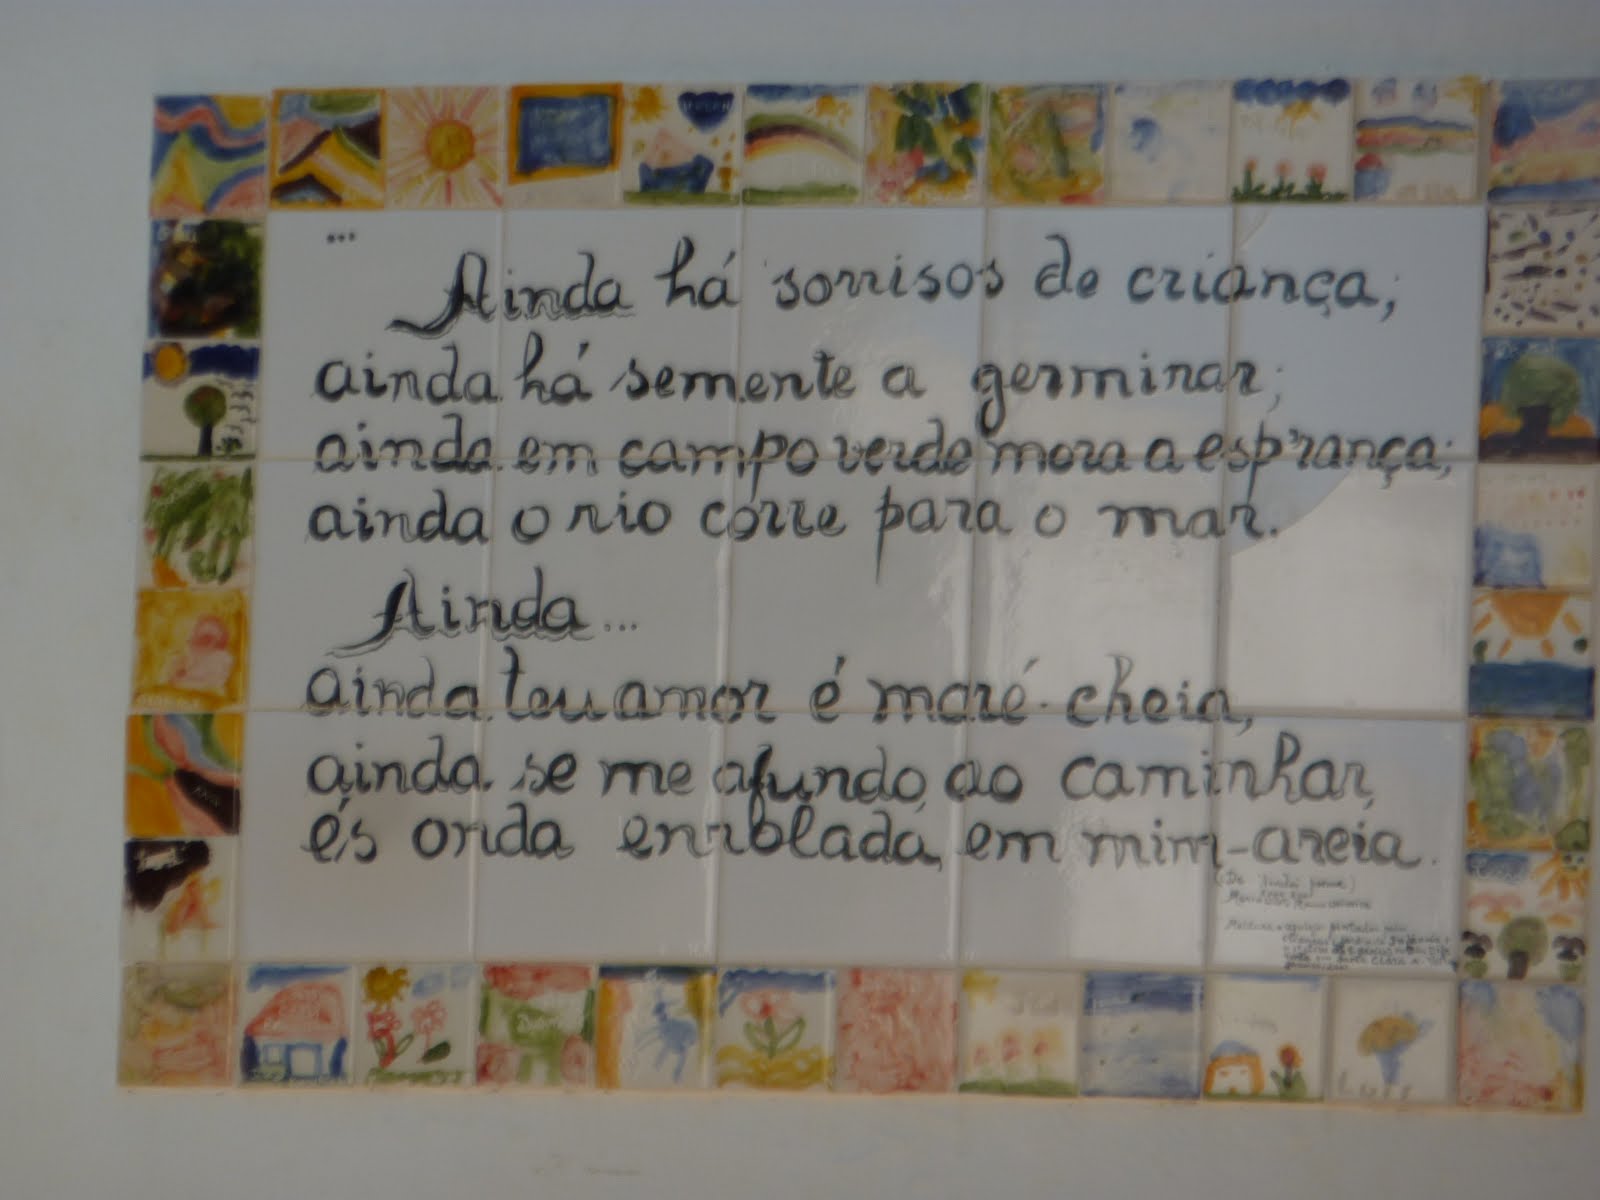 ...
Ainda há sorrisos de criança;
ainda há semente a germinar;
ainda em campo verde mora a esp'rança;
ainda o rio corre para o mar.
Ainda...
ainda teu amor é maré-cheia,
ainda se me afundo, ao caminhar,
és onda enrolada, em mim-areia.